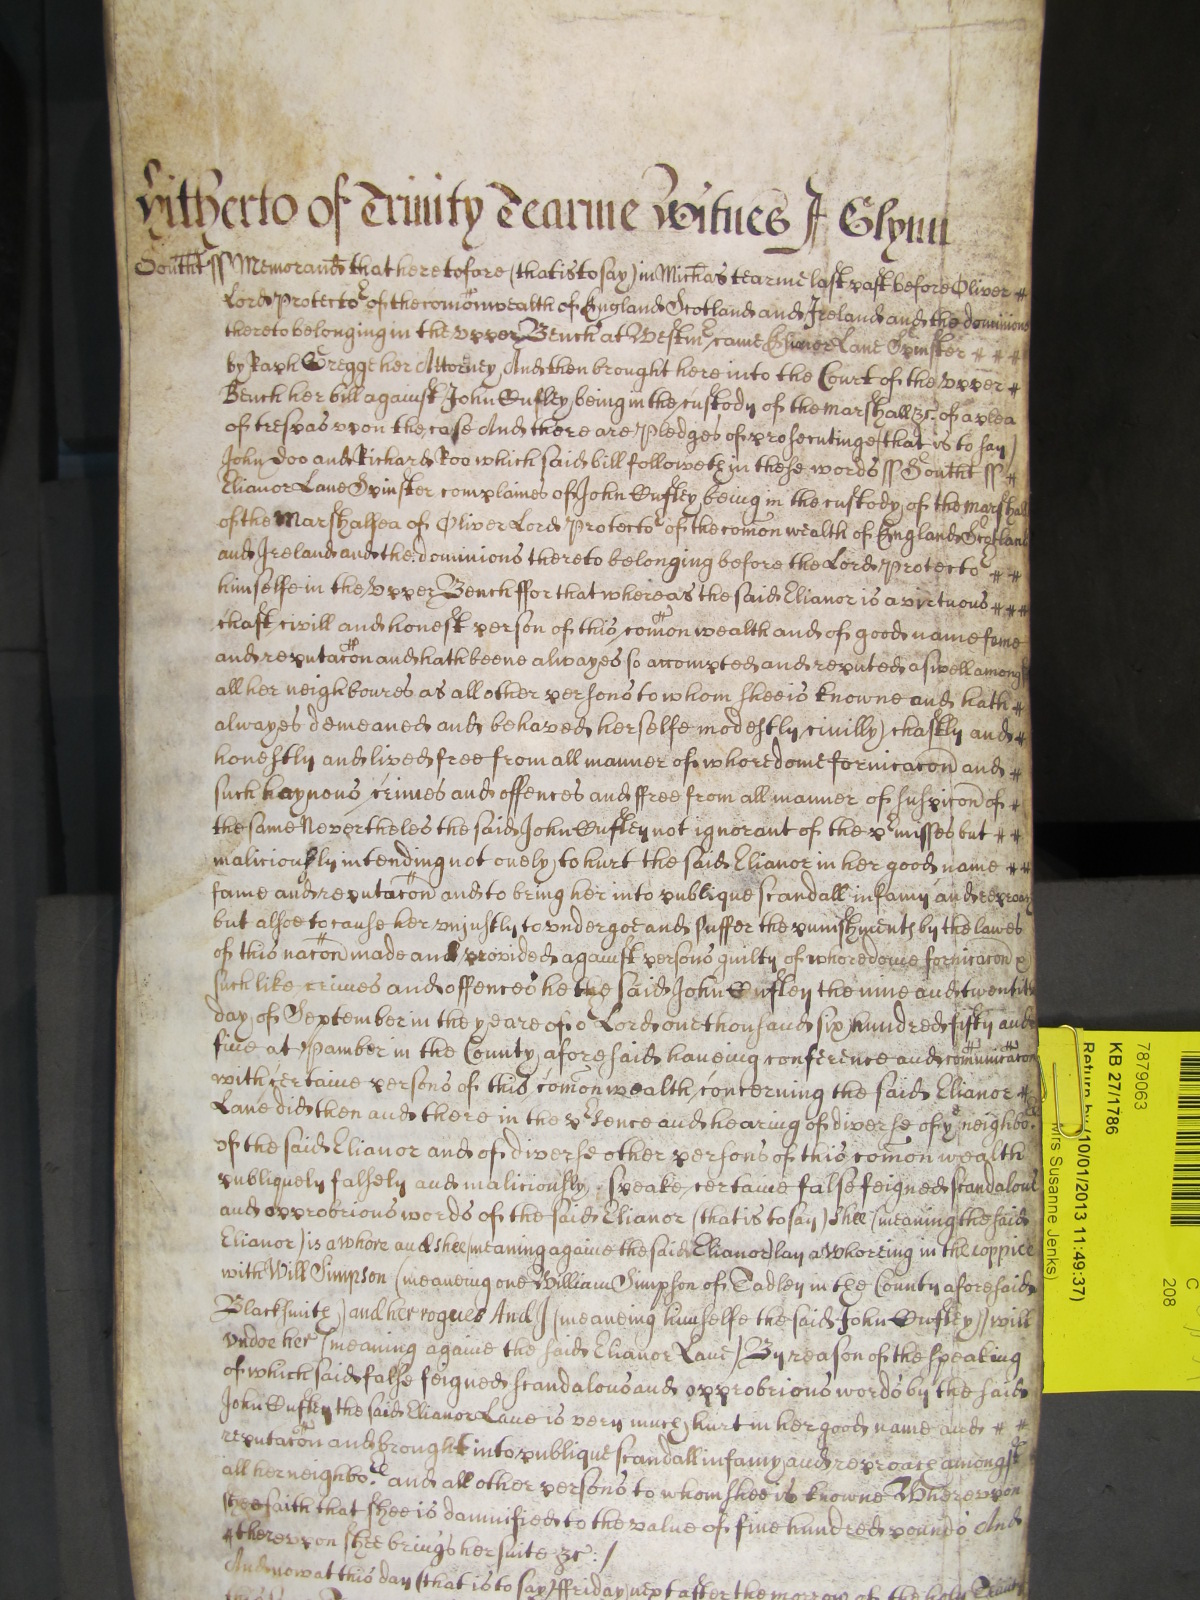 Hitherto of Trinity Tearme Witnes J Glynn
Southt ss Memorand that heretofore (that is to say) in Michas tearme last past before Oliver #
Lord Protector of the comonwealth of England Scotland and Ireland and the dominions
thereto belonging in the Upper Bench at Westmr came Elianor Lane Spinster # # #
by Raph Gregge her Attorney And then brought here into the Court of the Upper #
Bench her bill against John being in the custody of the marshall &c of a plea
of trespas upon the case And there are Pledges of prosecutinge (that is to say)
John Doo and Richard Roo which said bill followeth in these words ss Southt ss #
Elianor Lane Spinster complaines of John being in the custody of the marshall
of the Marshalsea of Oliver Lord Protector of the comon wealth of England Scotland
and Ireland and the dominions thereto belonging before the Lord Protector # #
himselfe in the Upper Bench ffor that whereas the said Elianor is a virtuous # # #
chast civill and honest person of this comon wealth and of good name fame
and reputacon and hath beene alwayes so accompted and reputed aswell amongst
all her neighboures as all other persons to whom shee is knowne and hath #
alwayes demeaned and behaved herselfe modestly civilly chastly and #
honestly and lived free from all manner of whoredome fornicacon and #
such haynous crimes and offences and ffree from all manner of suspicon of #
the same Nevertheles the said John not ignorant of the prmisses but # #
maliciously intending not onely to hurt the said Elianor in her good name # #
fame and reputacon and to bring her into publique scandall infamy and reproach
but alsoe to cause her unjustly to undergoe and suffer the punishments by the lawes
of this nacon made and provided against persons guilty of whoredome fornicacon &
such like crimes and offences he the said John the nine and twentith
day of September in the yeare of or Lord one thousand six hundred fifty and
five at Pamber in the County aforesaid haveing conference and comunicacon
with certaine persons of this comonwealth concerning the said Elianor #
Lane did then and there in the prsence and hearing of diverse of ye neighbors
of the said Elianor and of diverse other persons of this comon wealth
publiquely falsely and maliciously speake certaine false feigned scandalous
and opprobrious words of the said Elianor (that is to say) shee (meaning the said
Elianor) is a whore and shee (meaning againe the said Elianor) lay a whoreing in the coppice
with Will Simpson (meaneing one William Simpson of Tadley in the County aforesaid
Blacksmith) and her rogues And I (meaneing himselfe the said John) will
undoe her (meaning againe the said Elianor Lane) By reason of the speaking
of which said false feigned scandalous and opprobrious words by the said
John the said Elianor Lane is very much hurt in her good name and # #
reputacon and brought into publique scandall infamy and reproach amongst
all her neighbors and all other persons to whom shee is knowne Whereupon
shee saith that shee is damnified to the value of five hundred pounds And
#thereupon shee brings her suite &c :/
And now at this day (that is to say) ffriday next after the morrow of the holy Trinity
7879063
KB 27/1786
Return by (10/01/2013 11:49:37)
Mrs Susanne Jenks)
C
208